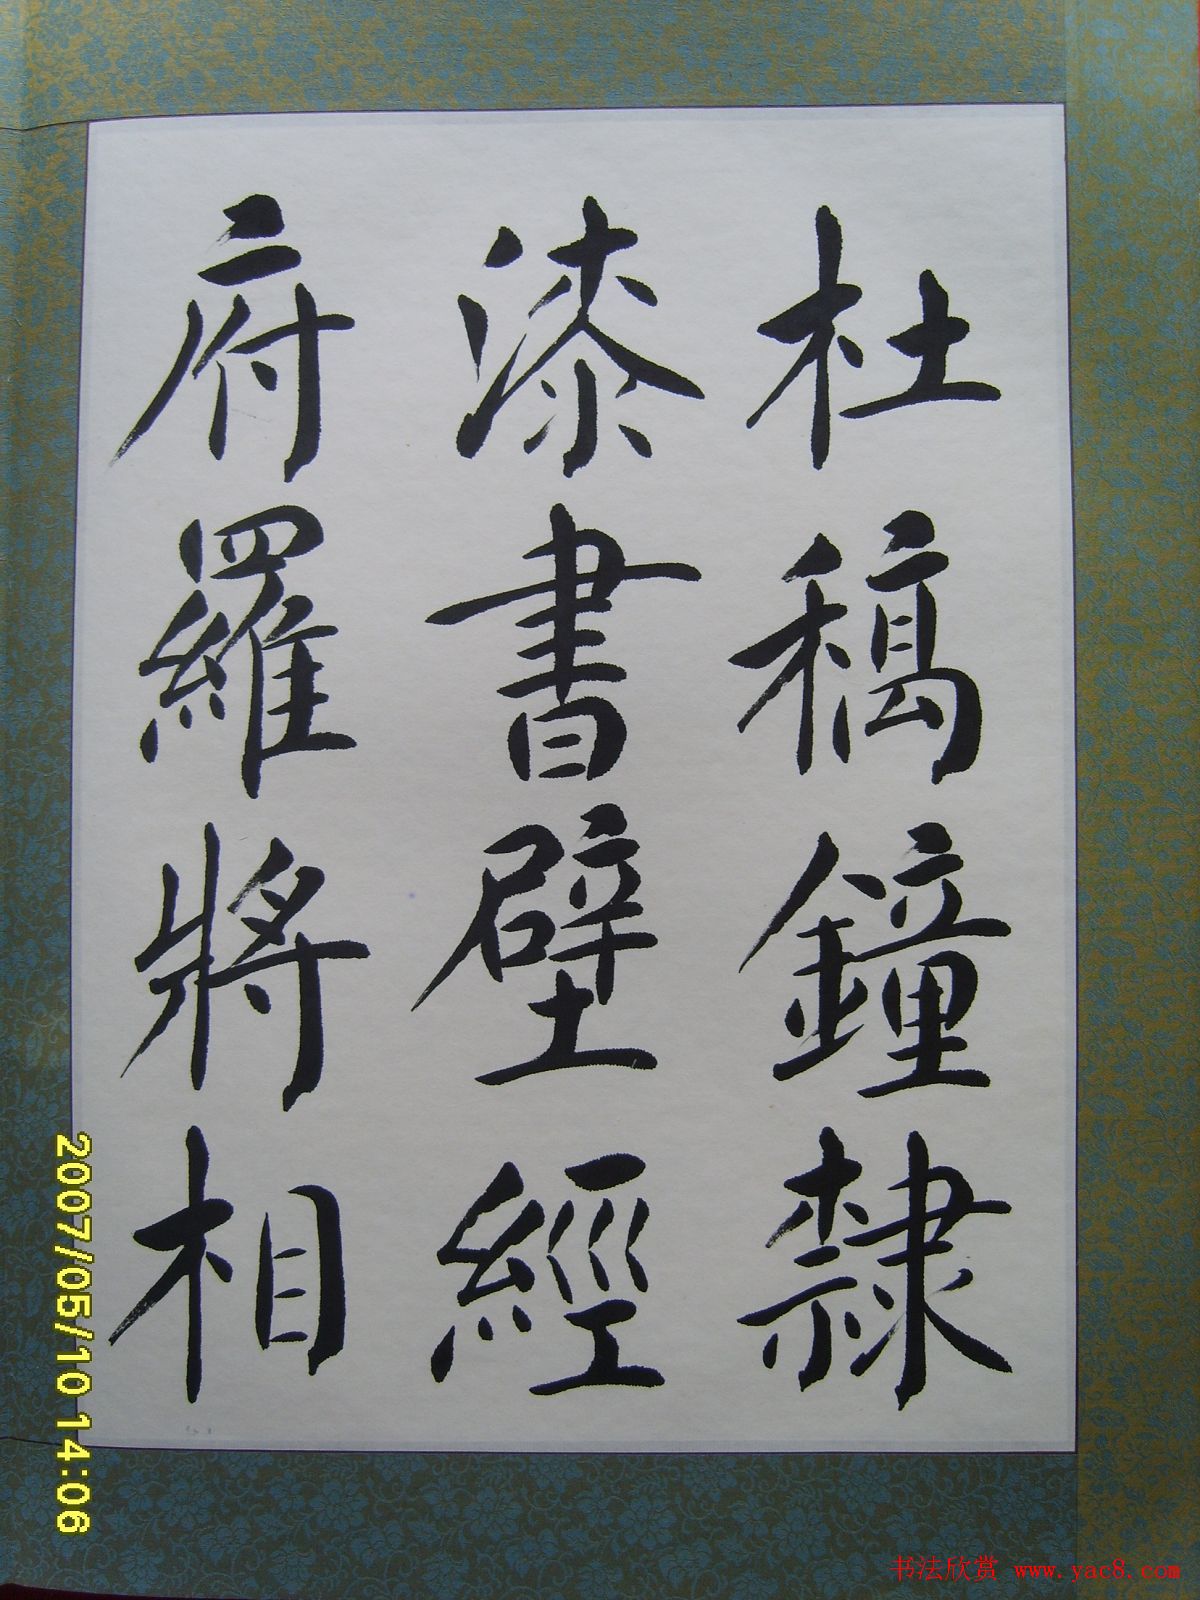 杜稿鐘隷
漆書壁經
府羅將相
2007/05/10 14:06
书法欣赏 www.yac8.com